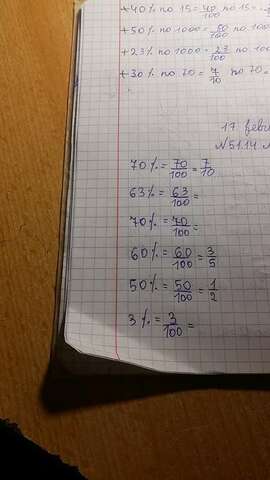 +40% по 15 = 40/100 по 15 =
+50% по 1000 = 50/100 по 100
+23% по 1000 = 23/100 по 100
+30% по 70 = 7/10 по 70 =
17. febr
N51.14 N
70% = 70/100 = 7/10
63% = 63/100 =
70% = 70/100 =
60% = 60/100 = 3/5
50% = 50/100 = 1/2
3% = 3/100 =